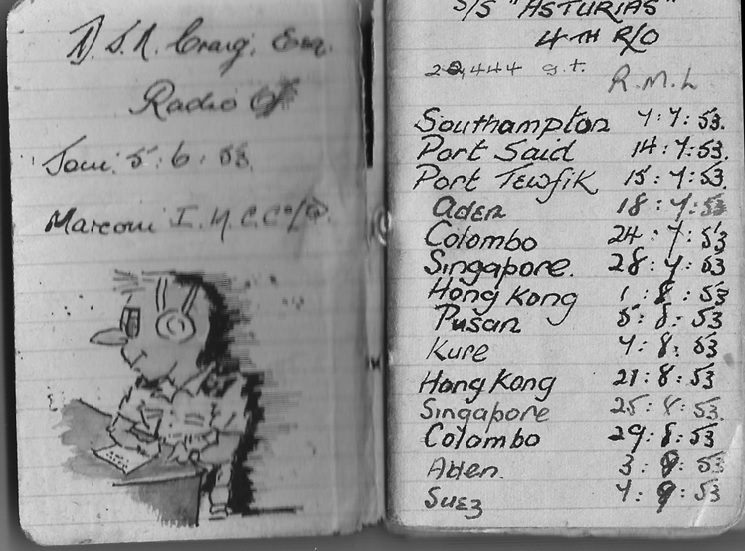 Craig, Esq.
Radio
5:6:53.
Marconi I.M.C.
S/S "ASTURIAS"
4TH R/O
g.t.
R.M.L
Southampton 7:7:53.
Port Said 14:7:53.
Port Tewfik 15:7:53.
Aden 18:7:53
Colombo 24:7:53
Singapore. 28:7:53
Hong Kong 1:8:53
Pusan 5:8:53
Kure 7:8:53
Hong Kong 21:8:53
Singapore 25:8:53.
Colombo 29:8:53
Aden. 3:9:53
Suez 7:9:53